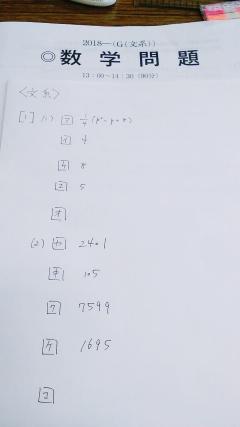 2018―(G(文系))
◎数学問題
13:00~14:30(90分)
<文系>
[1] (1) ア
イ 4
ウ 8
エ 5
(2) カ 2401
キ 105
ク 7599
ケ 1695
コ